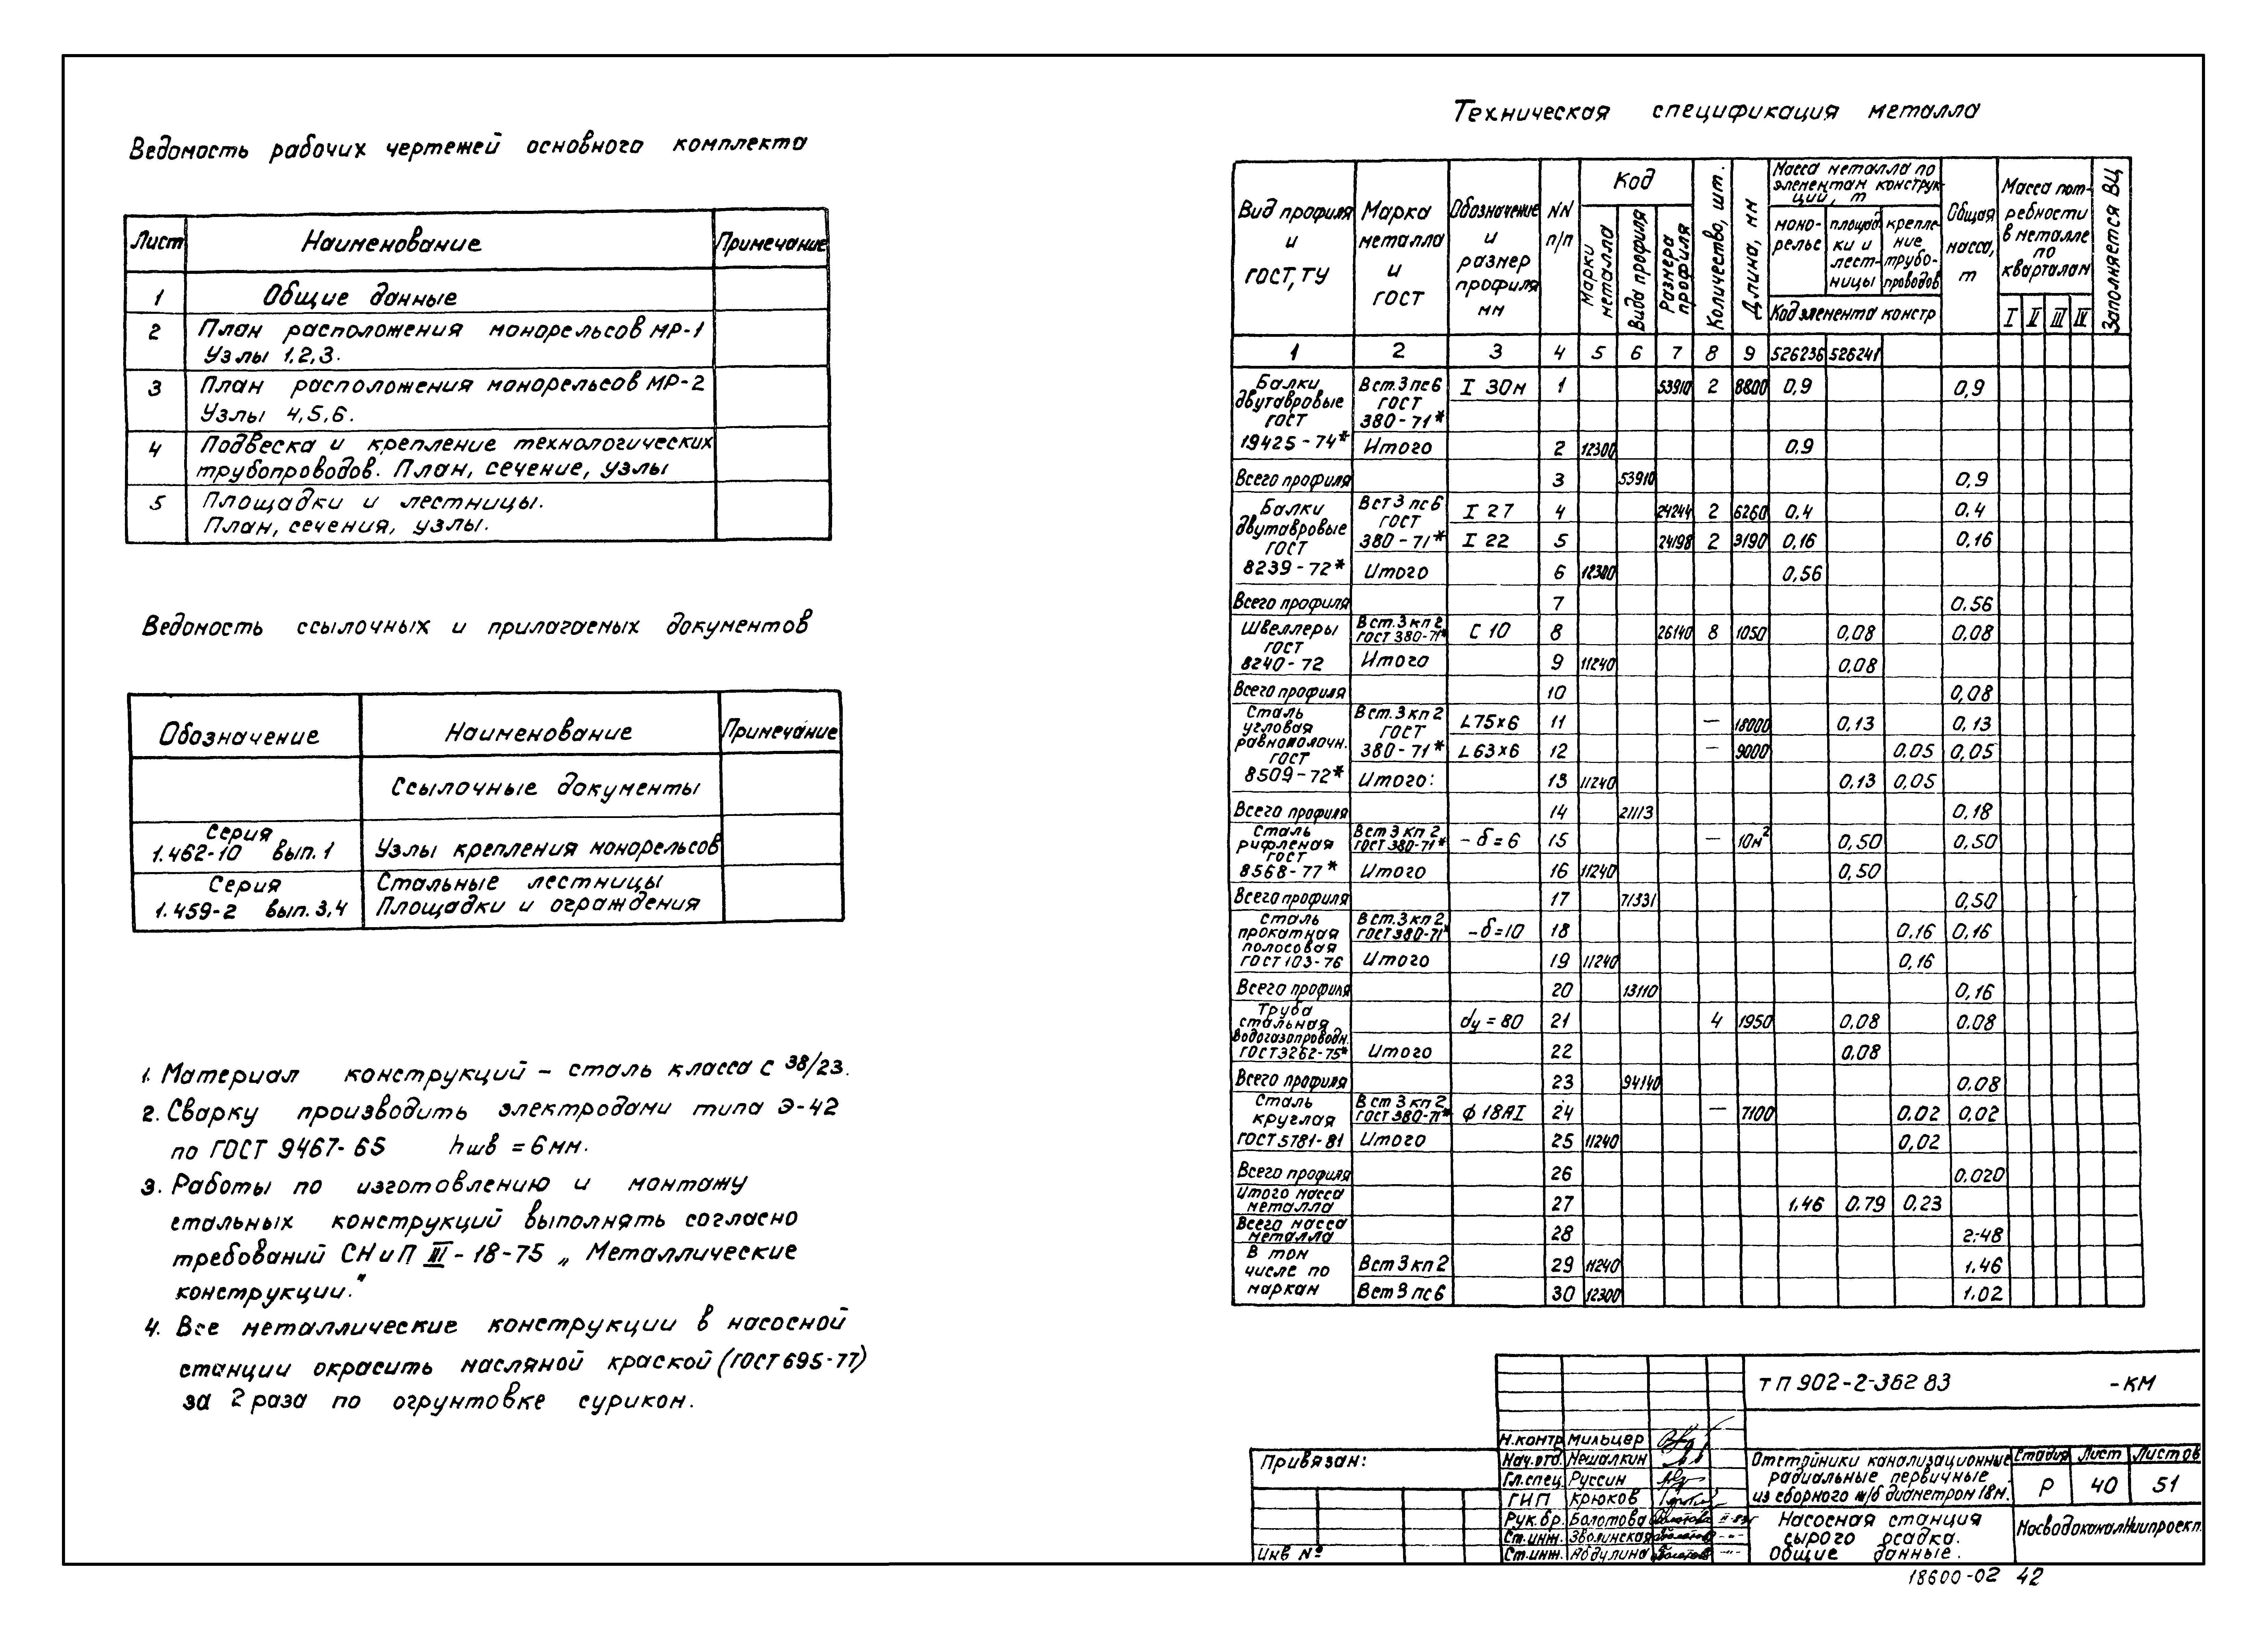 Ведомость рабочих чертежей основного комплекта
Лист Наименование Примечание
1 Общие данные
2 План расположения монорельсов МР-1
Узлы 1,2,3.
3 План расположения монорельсов МР-2
Узлы 4,5,6.
4 Подвеска и крепление технологических
трубопроводов. План, сечение, узлы
5 Площадки и лестницы.
План, сечения, узлы.
Ведомость ссылочных и прилагаемых документов
Обозначение Наименование Примечание
Ссылочные документы
Серия
1.462-10 вып.1 Узлы крепления монорельсов
Серия Стальные лестницы
1.459-2 вып.3,4 Площадки и ограждения
1. Материал конструкций - сталь класса С 38/23.
2. Сварку производить электродами типа Э-42
по ГОСТ 9467-65 hшв = 6мм.
3. Работы по изготовлению и монтажу
стальных конструкций выполнять согласно
требований СНиП III-18-75 „Металлические
конструкции."
4. Все металлические конструкции в насосной
станции окрасить масляной краской (ГОСТ 695-77)
за 2 раза по огрунтовке суриком.
Техническая спецификация металла
Вид профиля и ГОСТ, ТУ
Марка металла и ГОСТ
Обозначение и размер профиля мм
NN п/п
Код
Марки металла
Вида профиля
Размера профиля
Количество, шт.
Длина, мм
Масса металла по элементам конструкций, т
моно-рельс
площадки и лест-ницы
крепле-ние трубо-проводов
Код элемента констр
Общая масса, т
Масса пот-ребности в металле по кварталам
I II III IV
Заполняется ВЦ
1 2 3 4 5 6 7 8 9 526236 526241
Балки двутавровые ГОСТ 19425-74* Вст.3пс6 ГОСТ 380-71* I 30м 1 53910 2 8800 0,9 0,9
Итого 2 12300 0,9
Всего профиля 3 53910 0,9
Балки двутавровые ГОСТ 8239-72* Вст3пс6 ГОСТ 380-71* I 27 4 24244 2 6260 0,4 0.4
I 22 5 24198 2 3190 0,16 0,16
Итого 6 12300 0,56
Всего профиля 7 0.56
Швеллеры ГОСТ 8240-72 Вст.3кп2 ГОСТ 380-71* С 10 8 26140 8 1050 0,08 0,08
Итого 9 11240 0,08
Всего профиля 10 0,08
Сталь угловая равнополочн. ГОСТ 8509-72* Вст.3кп2 ГОСТ 380-71* L75х6 11 — 18000 0,13 0,13
L63х6 12 — 9000 0.05 0,05
Итого: 13 11240 0,13 0,05
Всего профиля 14 21113 0,18
Сталь рифленая ГОСТ 8568-77* Вст3кп2 ГОСТ 380-71* - δ=6 15 — 10м² 0,50 0,50
Итого 16 11240 0,50
Всего профиля 17 71331 0,50
Сталь прокатная полосовая ГОСТ 103-76 Вст.3кп2 ГОСТ 380-71* -δ=10 18 0.16 0,16
Итого 19 11240 0,16
Всего профиля 20 13110 0,16
Труба стальная водогазопроводн. ГОСТ3262-75* dу=80 21 4 1950 0.08 0.08
Итого 22 0.08
Всего профиля 23 94140 0.08
Сталь круглая ГОСТ 5781-81 Вст3кп2 ГОСТ 380-71* ф18АI 24 — 7100 0.02 0,02
Итого 25 11240 0,02
Всего профиля 26 0.020
Итого масса металла 27 1.46 0.79 0,23
Всего масса металла 28 2.48
В том числе по маркам Вст3кп2 29 11240 1.46
Вст3пс6 30 12300 1.02
ТП 902-2-362 83 -КМ
Привязан:
Инв №
Н.контр Мильцер
Нач.отд. Мешалкин
Гл.спец. Руссин
ГИП Крюков
Рук.бр. Болотова
Ст.инж. Зволинская
Ст.инж. Абдулина
Отстойники канализационные
радиальные первичные
из сборного ж/б диаметром 18м.
Стадия Лист Листов
Р 40 51
Насосная станция
сырого осадка.
Общие данные.
МосводоканалНиипроект.
18600-02 42